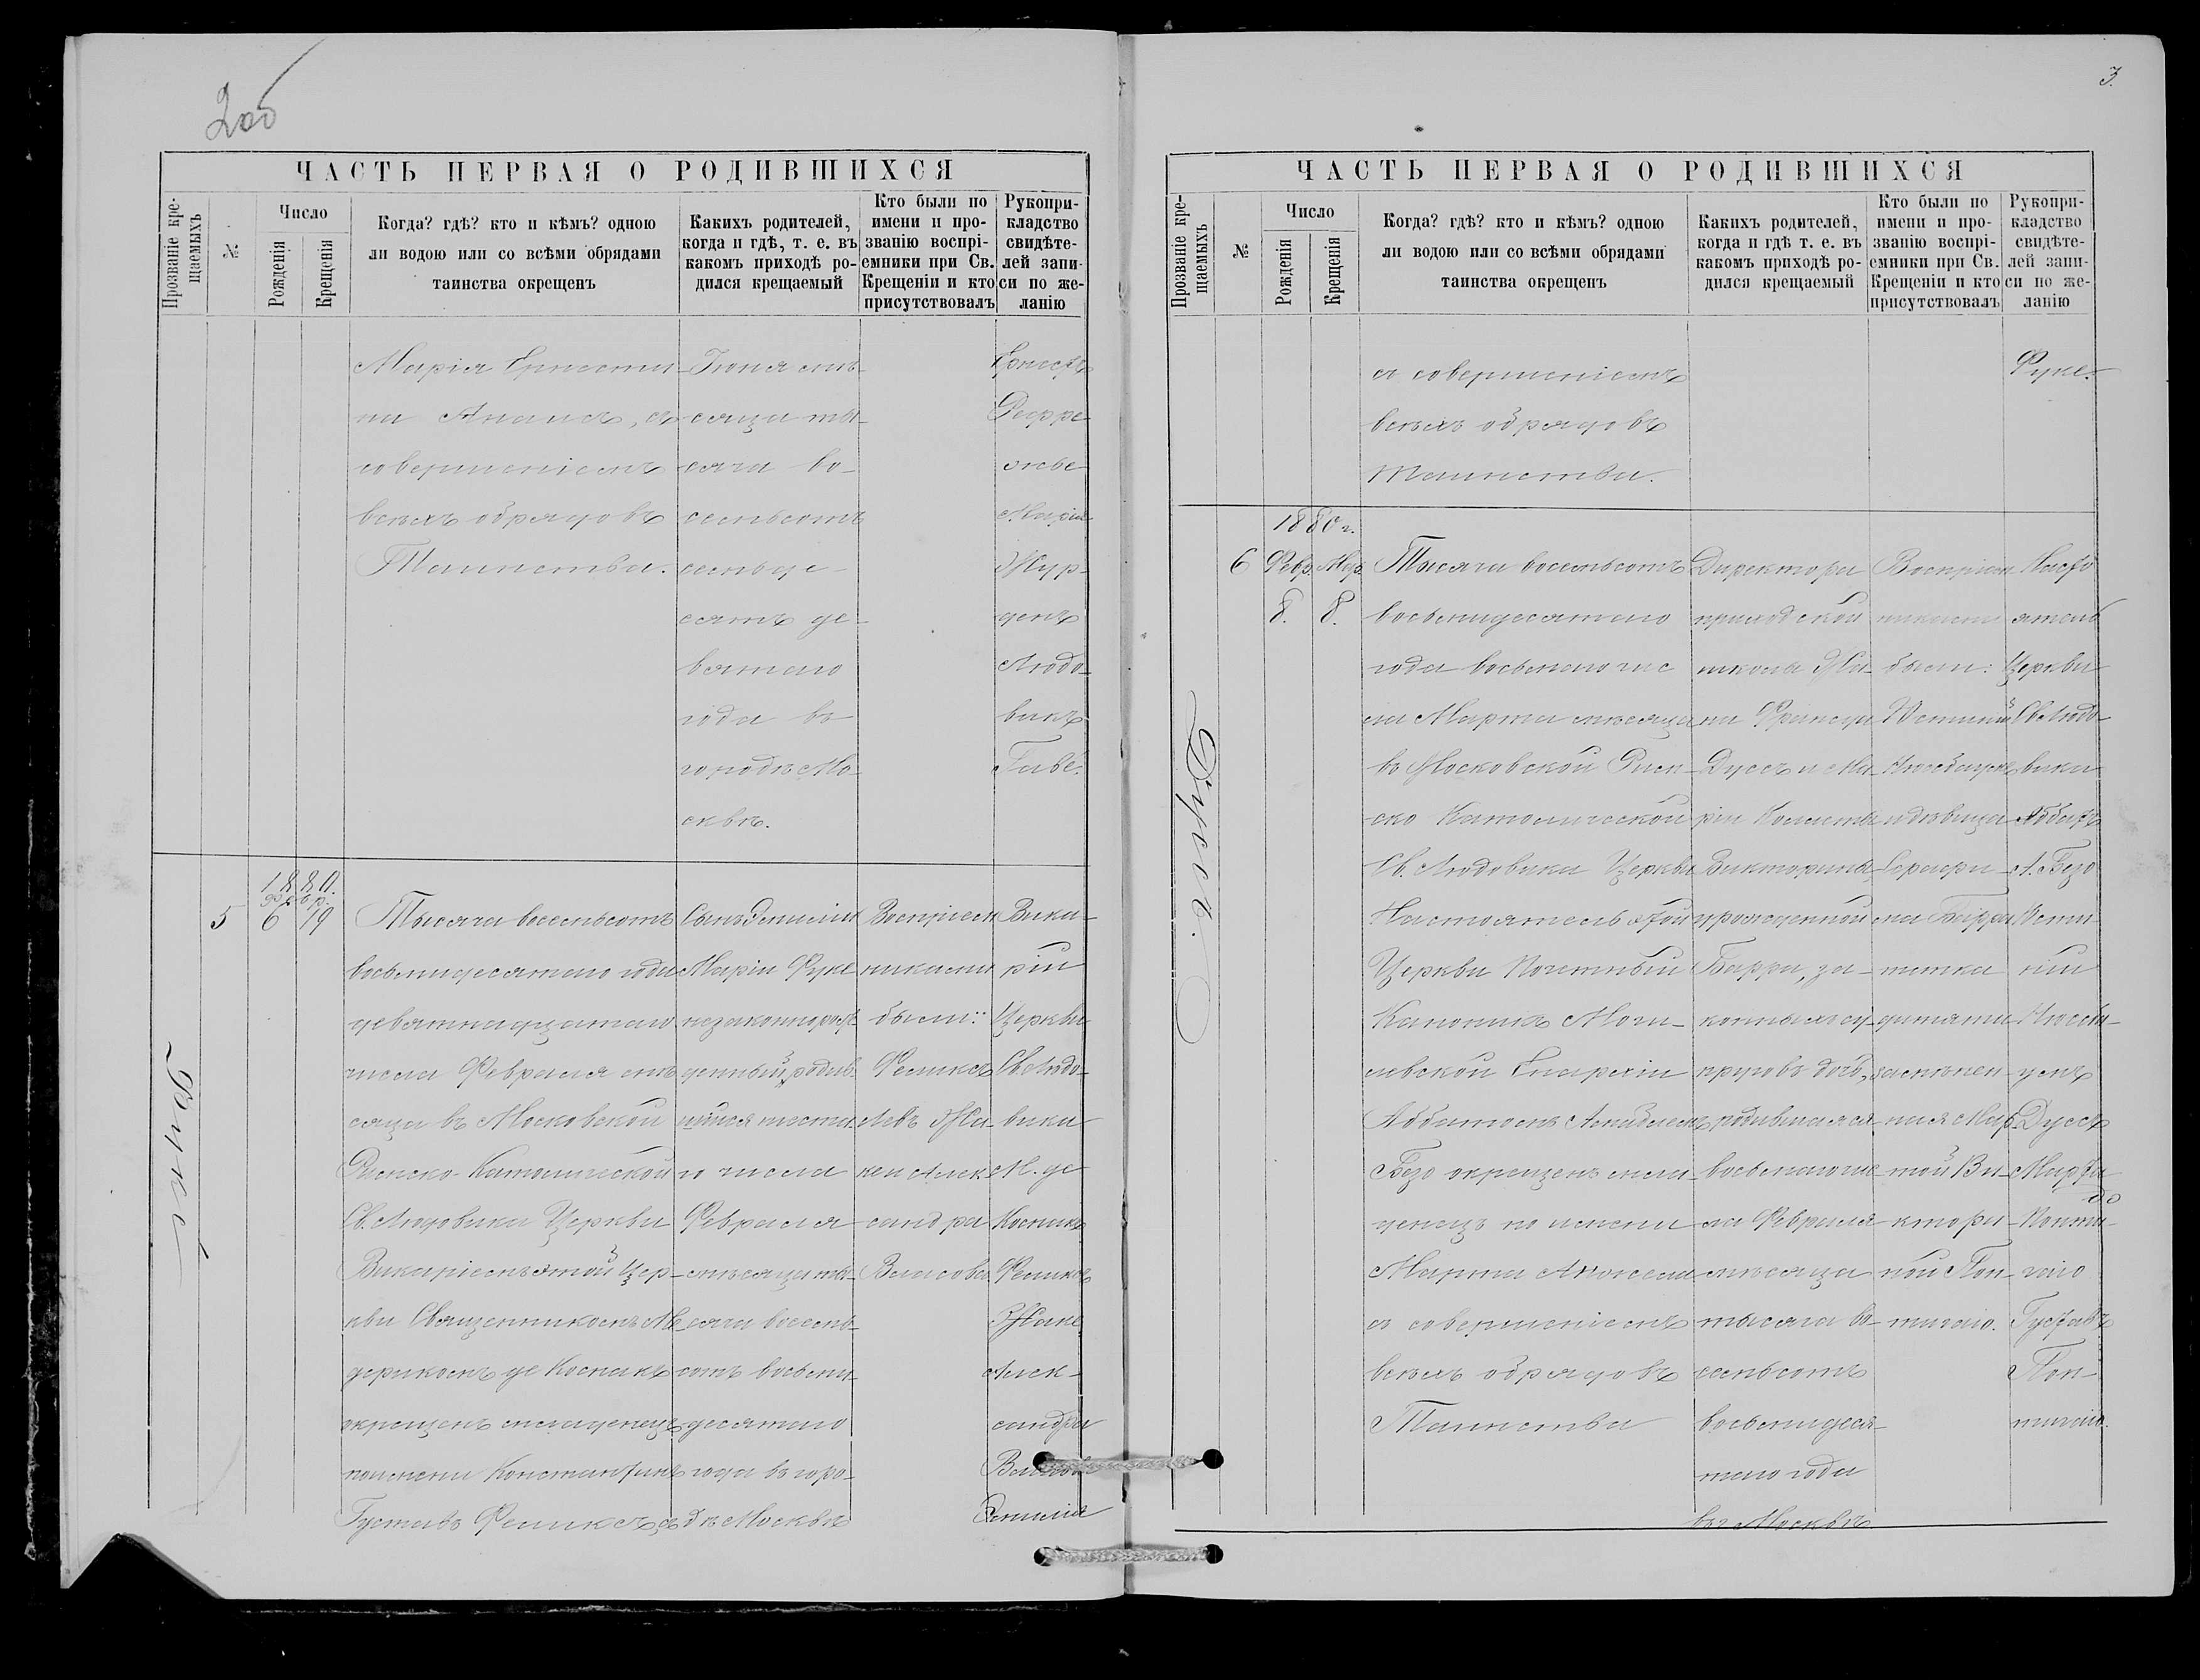 2об
ЧАСТЬ ПЕРВАЯ О РОДИВШИХСЯ
Прозваніе кре-
щаемыхъ
№
Число
Рожденія
Крещенія
Когда? гдѣ? кто и кѣмъ? одною
ли водою или со всѣми обрядами
таинства окрещенъ
Какихъ родителей,
когда и гдѣ, т. е. въ
какомъ приходѣ ро-
дился крещаемый
Кто были по
имени и про-
званію воспрі-
емники при Св.
Крещеніи и кто
присутствовалъ
Рукопри-
кладство
свидѣте-
лей запи-
си по же-
ланію
Марія Ернести-
на Анаиса, съ
совершеніемъ
всѣхъ обрядовъ
Таинства.
Іюня мѣ-
сяца ты-
сяча во-
семьсотъ
семьде-
сятъ де-
вятаго
года въ
городѣ Мо-
сквѣ.
Ернестъ
Марія
Жур-
денъ
Людо-
викъ
Гаве.
Фуке
5
1880.
Февр.
6
19
Тысяча восемьсотъ
восьмидесятаго года
девятнадцатаго
числа Февраля мѣ-
сяца въ Московской
Римско-Католической
Св. Людовика Церкви
Викаріемъ этой Цер-
кви Священникомъ Ме-
дерикомъ де Коснакъ
окрещенъ младенецъ
по имени Константинъ
Густавъ Феликсъ, съ
Сынъ Эмиліи
Маріи Фуке
незаконнорож-
денный, родив-
шійся шеста-
го числа
Февраля
мѣсяца ты-
сяча восемь-
сотъ восьми-
десятаго
года въ горо-
дѣ Москвѣ
Воспріем-
никами
были:
Феликсъ
Левъ Жа-
кен Алек-
сандра
Власова
Вика-
рій
Церкви
Св. Людо-
вика
М. де
Коснакъ
Феликсъ
Жаке
Алек-
сандра
Власова
Эмилія
3.
ЧАСТЬ ПЕРВАЯ О РОДИВШИХСЯ
Прозваніе кре-
щаемыхъ
№
Число
Рожденія
Крещенія
Когда? гдѣ? кто и кѣмъ? одною
ли водою или со всѣми обрядами
таинства окрещенъ
Какихъ родителей,
когда и гдѣ т. е. въ
какомъ приходѣ ро-
дился крещаемый
Кто были по
имени и про-
званію воспрі-
емники при Св.
Крещеніи и кто
присутствовалъ
Рукопри-
кладство
свидѣте-
лей запи-
си по же-
ланію
съ совершеніемъ
всѣхъ обрядовъ
таинства.
Фуке.
Дуссъ.
1880 г.
6
Февр.
8.
Мар.
8.
Тысяча восемьсотъ
восьмидесятаго
года восьмаго чис-
ла Марта мѣсяца
въ Московской Рим-
ско Католической
Св. Людовика Церкви
Настоятель этой
Церкви Почетный
Каноникъ Моги-
левской Епархіи
Аббатомъ Ахилломъ
Безо окрещенъ мла-
денецъ по имени
Марта Анжела
съ совершеніемъ
всѣхъ обрядовъ
Таинства
Директора
приходской
школы Жа-
на Франсуа
Дуссъ и Ма-
ріи Коломбы
Викторины
урожденной
Барра, за-
конныхъ су-
пруговъ дочь,
родившаяся
восьмаго чис-
ла Февраля
мѣсяца
тысяча во-
семьсотъ
восьмидеся-
таго года
въ Москвѣ
Воспріем-
никами
были:
и дѣвица
Серафи-
на Барра
Мар-
той Ви-
ктори-
ной Пон-
Насто-
ятель
Церкви
Св. Людо-
вика
Аббатъ
А. Безо
Дуссъ
Марта
Густавъ
Пон-